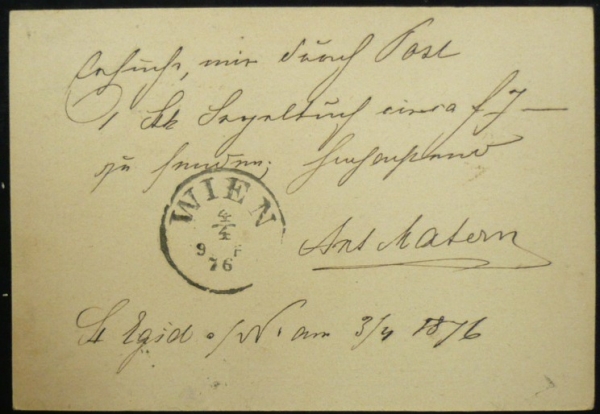 Ersuche, mir durch Post
1 Stk Segeltuch circa f 7 —
zu senden;
WIEN
4/4
9 F
76
Ant Matern
St Egid a/N. am 3/4 1876